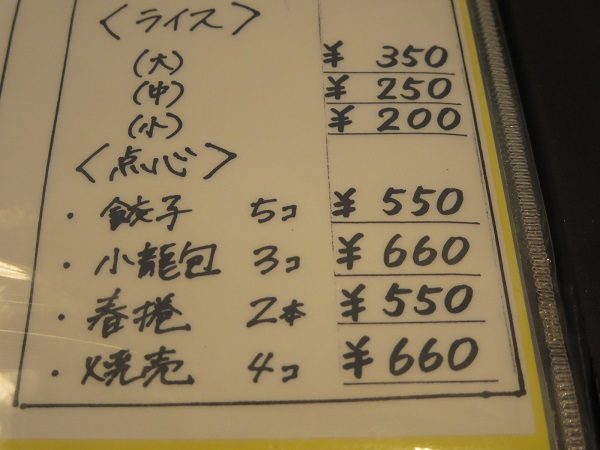 〈ライス〉
(大) ¥350
(中) ¥250
(小) ¥200
〈点心〉
・餃子 5コ ¥550
・小龍包 3コ ¥660
・春捲 2本 ¥550
・焼売 4コ ¥660